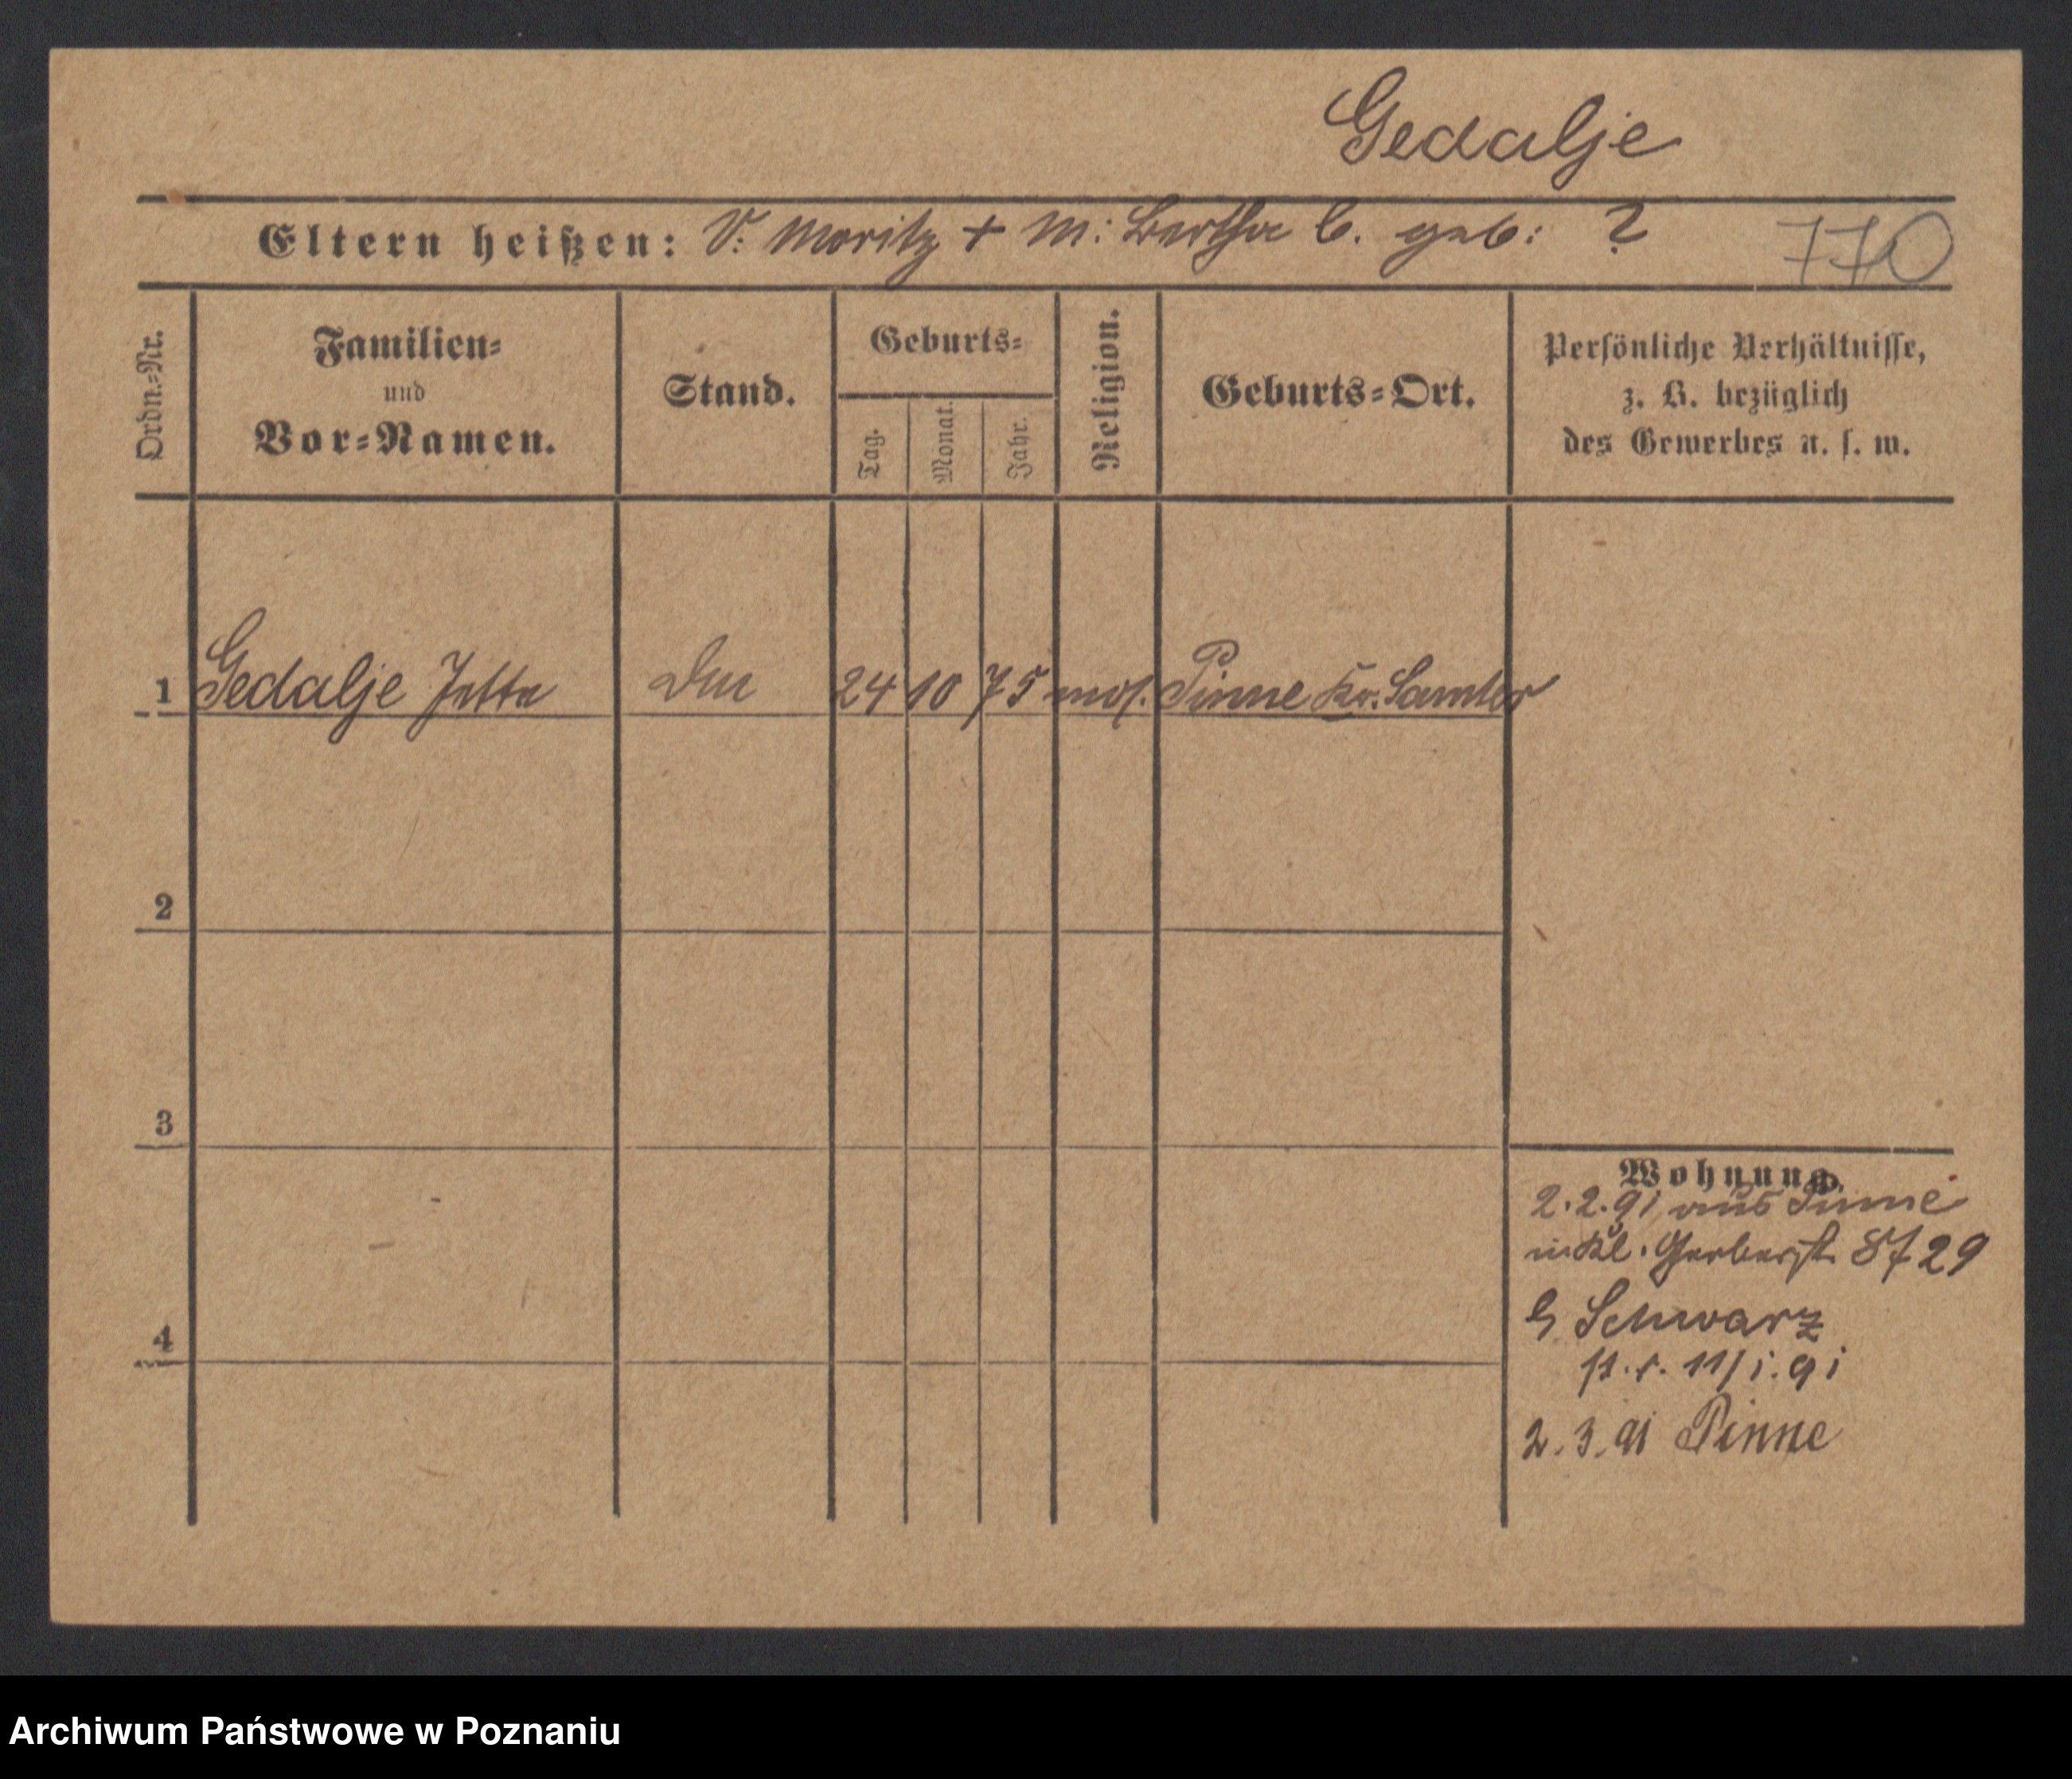 Gedalje
Eltern heißen: V: Moritz + M: Bertha geb: ?
770
Ordn.-Nr.
Familien-
und
Vor-Namen.
Stand.
Geburts-
Tag.
Monat.
Jahr.
Religion.
Geburts-Ort.
Persönliche Verhältnisse,
z. B. bezüglich
des Gewerbes u. s. w.
1 Gedalje Jette 24 10 75 mos. Pinne Kr. Samter
2
3
4
Wohnung.
2.2.91 aus Pinne
Kl. Gerberstr 8
Schwarz
11/1.91
2.3.91 Pinne
Archiwum Państwowe w Poznaniu